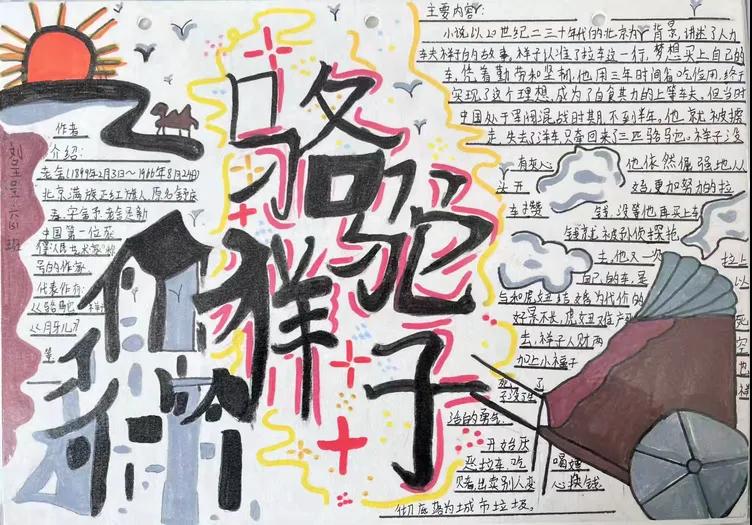 骆驼祥子
作者
介绍:
老舍(1899年2月3日～1966年8月24日)
北京满族正红旗人,原名舒庆
春,字舍予,老舍是新
中国第一位获
得"人民艺术家"称
号的作家
代表作有:
《骆驼祥子》
《月牙儿》
等
六班
主要内容:
小说以20世纪二三十年代的北京为背景,讲述了人力
车夫祥子的故事,祥子认准了拉车这一行,梦想买上自己的
车,凭着勤劳和坚韧,他用三年时间省吃俭用,终于
实现了这个理想,成为了自食其力的上等车夫,但当时
中国处于军阀混战时期,不到半年,他就被掳
走,失去了洋车,只牵回来了三匹骆驼。祥子没
有灰心 他依然倔强地从
头开 更加努力的拉
车攒 钱,没等他再买上车
钱就被孙侦探抢
去,他又一次 拉上
自己的车,是 以
与和虎妞结婚为代价的
好景不长,虎妞难产死
去,祥子人财两空
加上小福子 也
死了
活的勇气
开始厌
恶拉车,吃喝嫖
赌,出卖别人 换钱。
彻底沦为城市垃圾。